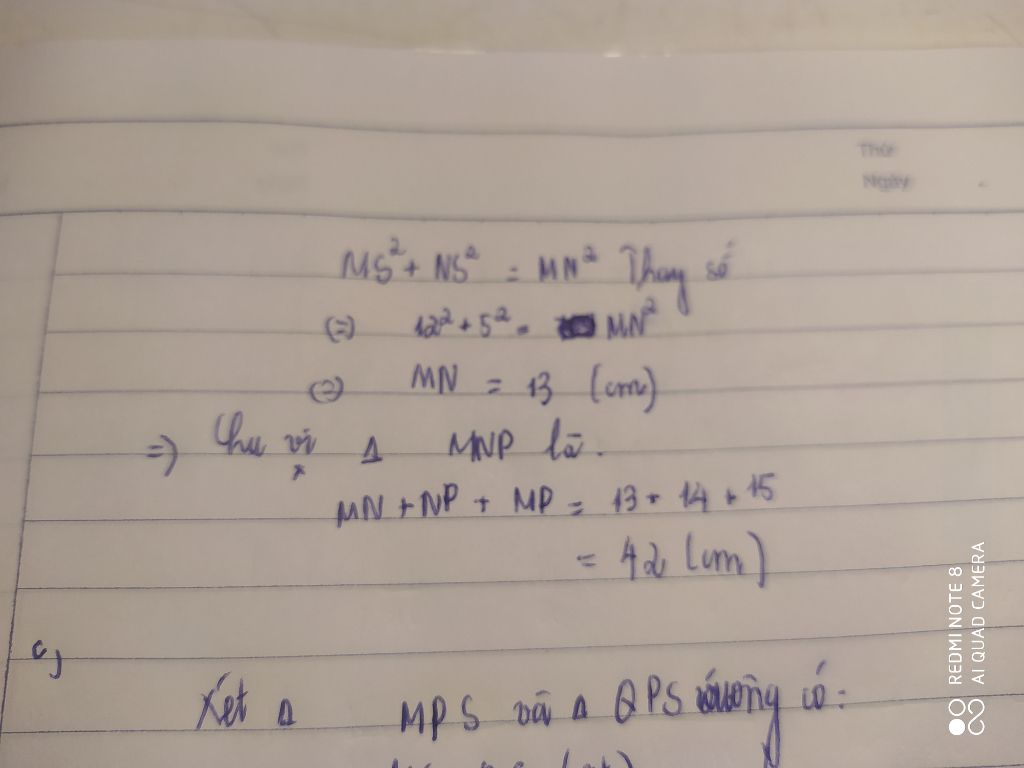 Thứ:
Ngày:
MS² + NS² = MN² Thay số
(=) 12² + 5² = MN²
(=) MN = 13 (cm)
=) Chu vi Δ MNP là.
MN + NP + MP = 13 + 14 + 15
= 42 (cm)
c)
Xét Δ MPS và Δ QPS vuông có:
REDMI NOTE 8
AI QUAD CAMERA